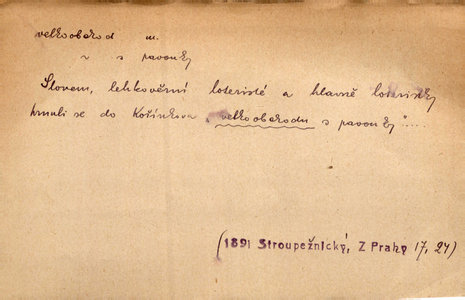 velkoobchod m.
~ s pavouky
Slovem, lehkověrní loteristé a hlavně loteristky
hrnuli se do Kořínkova „velkoobchodu s pavouky“...
(1891 Stroupežnický, Z Prahy 17, 24)